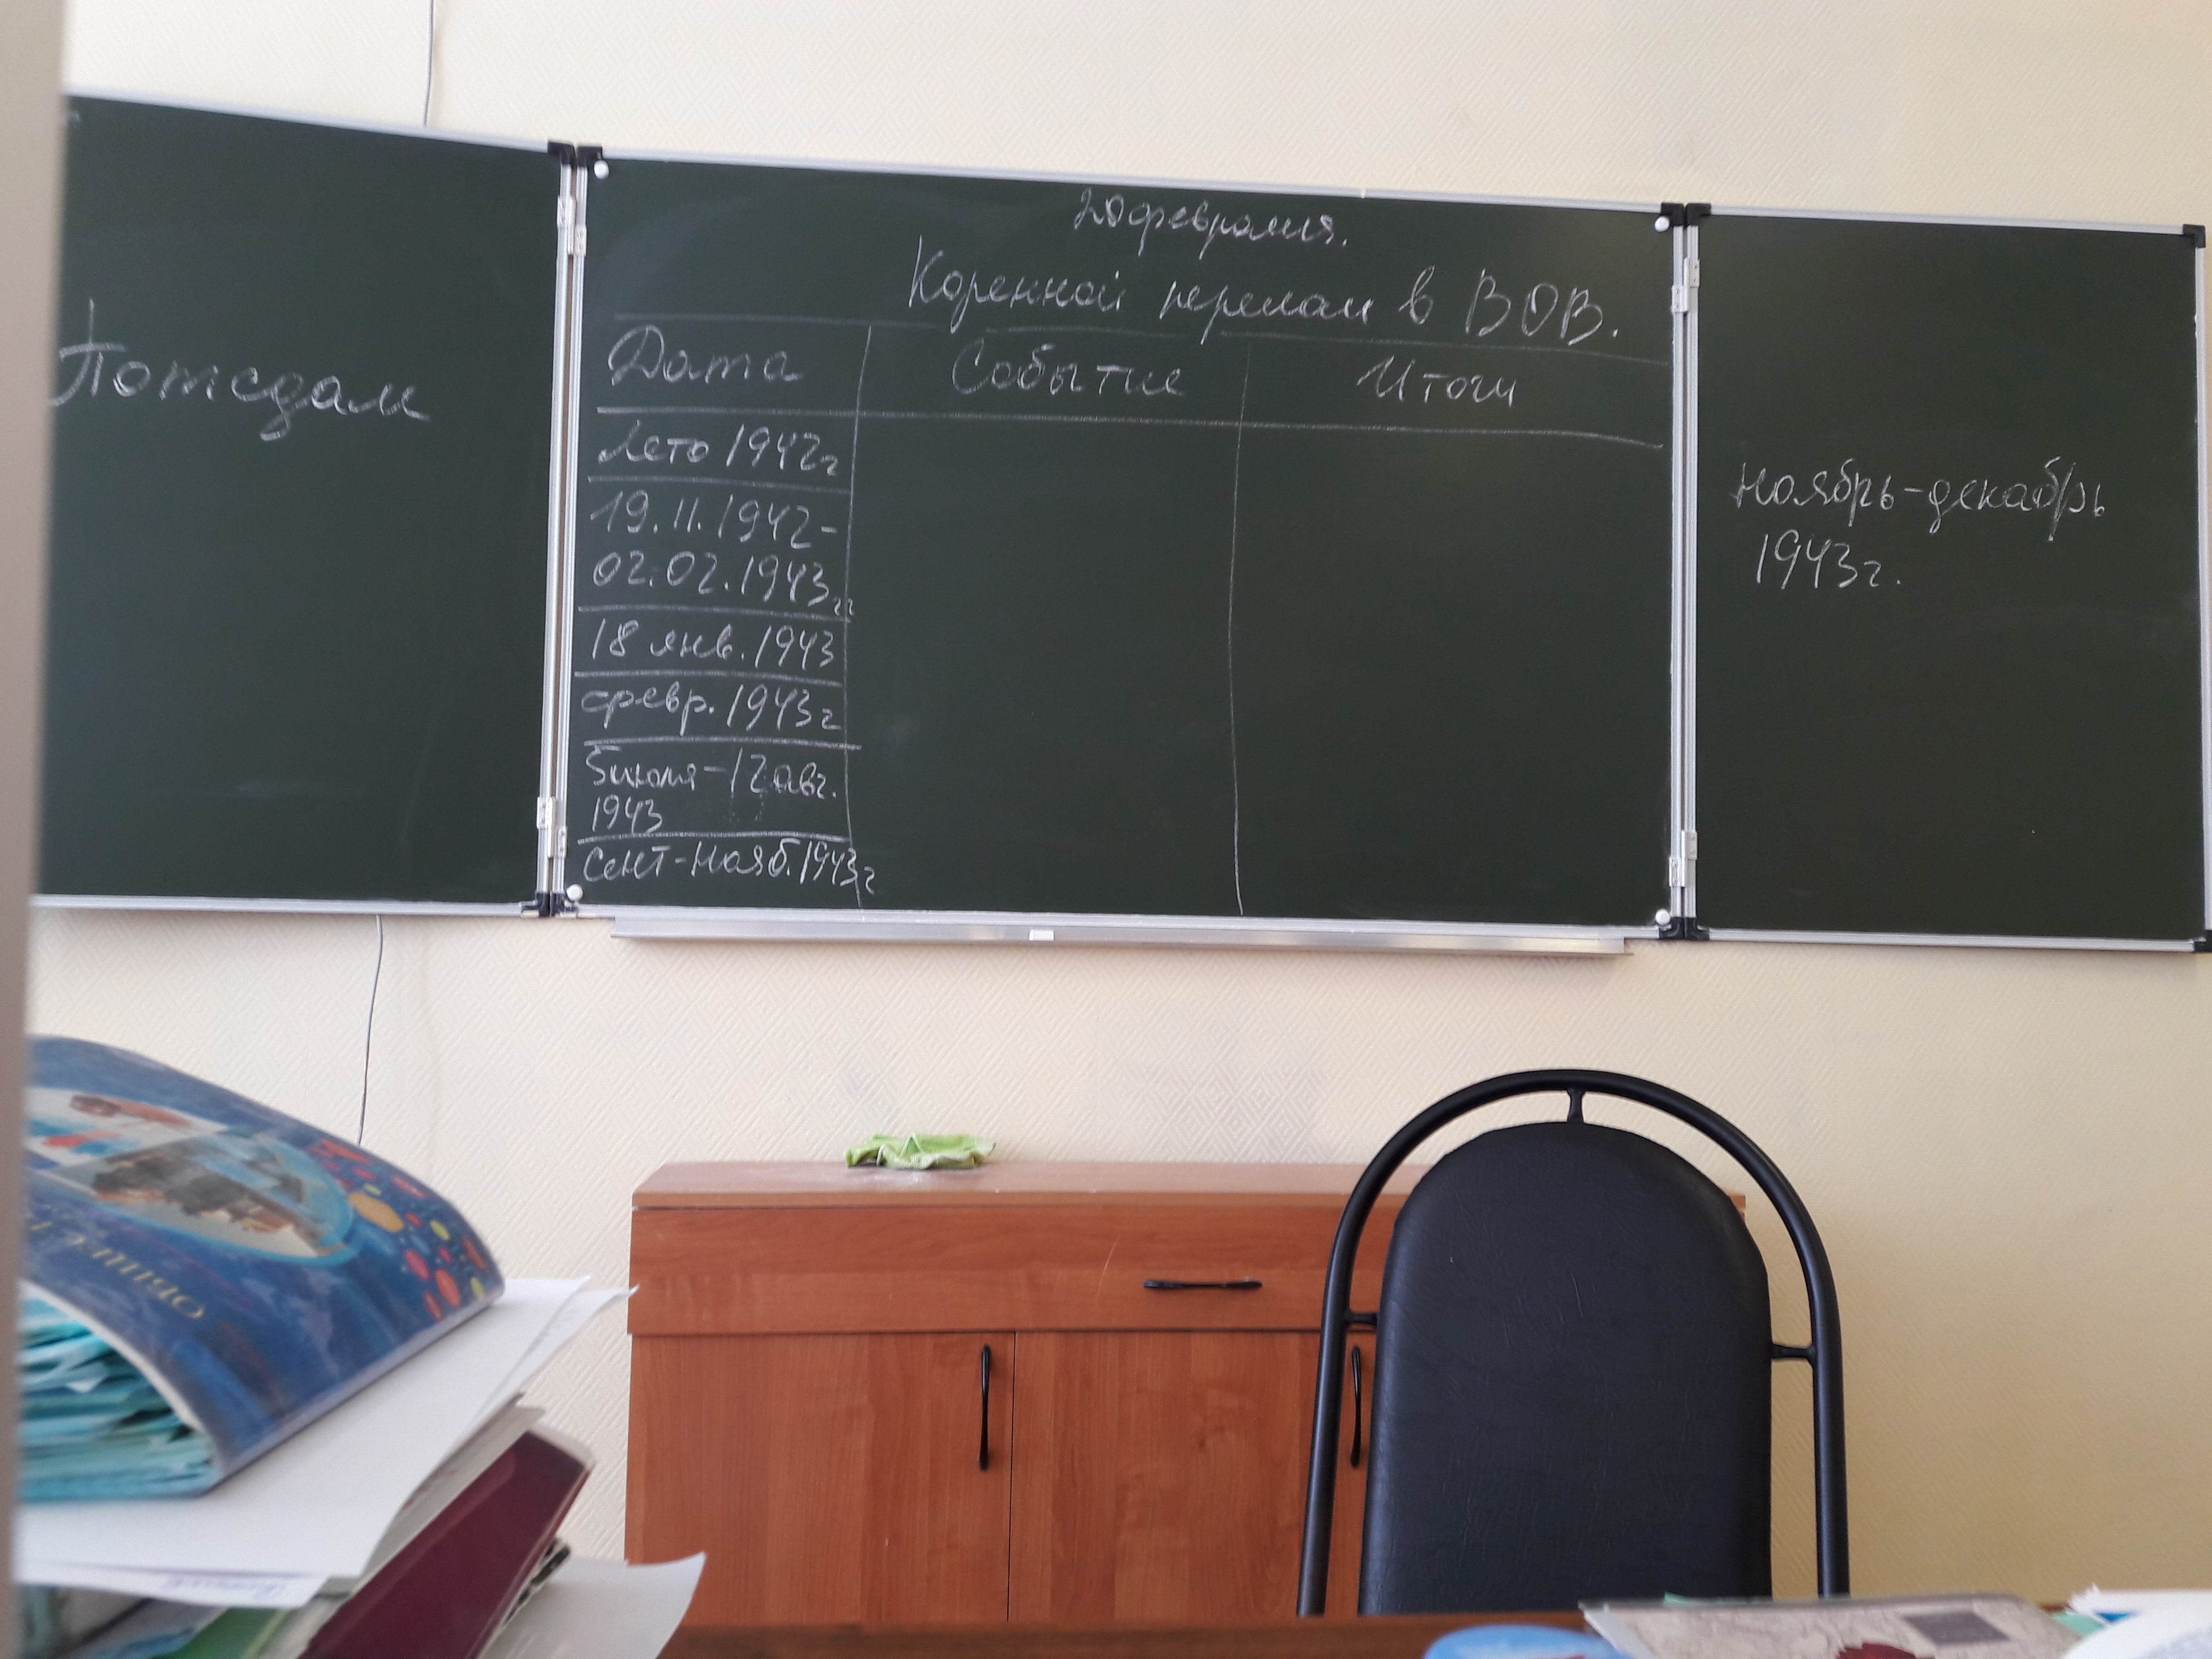 Потсдам
20 февраля.
Коренной перелом в ВОВ.
Дата Событие Итоги
Лето 1942г
19.11.1942-
02.02.1943гг
18 янв. 1943
февр. 1943г
5 июля - 12 авг.
1943
Сент-Нояб. 1943г
Ноябрь-декабрь
1943г.